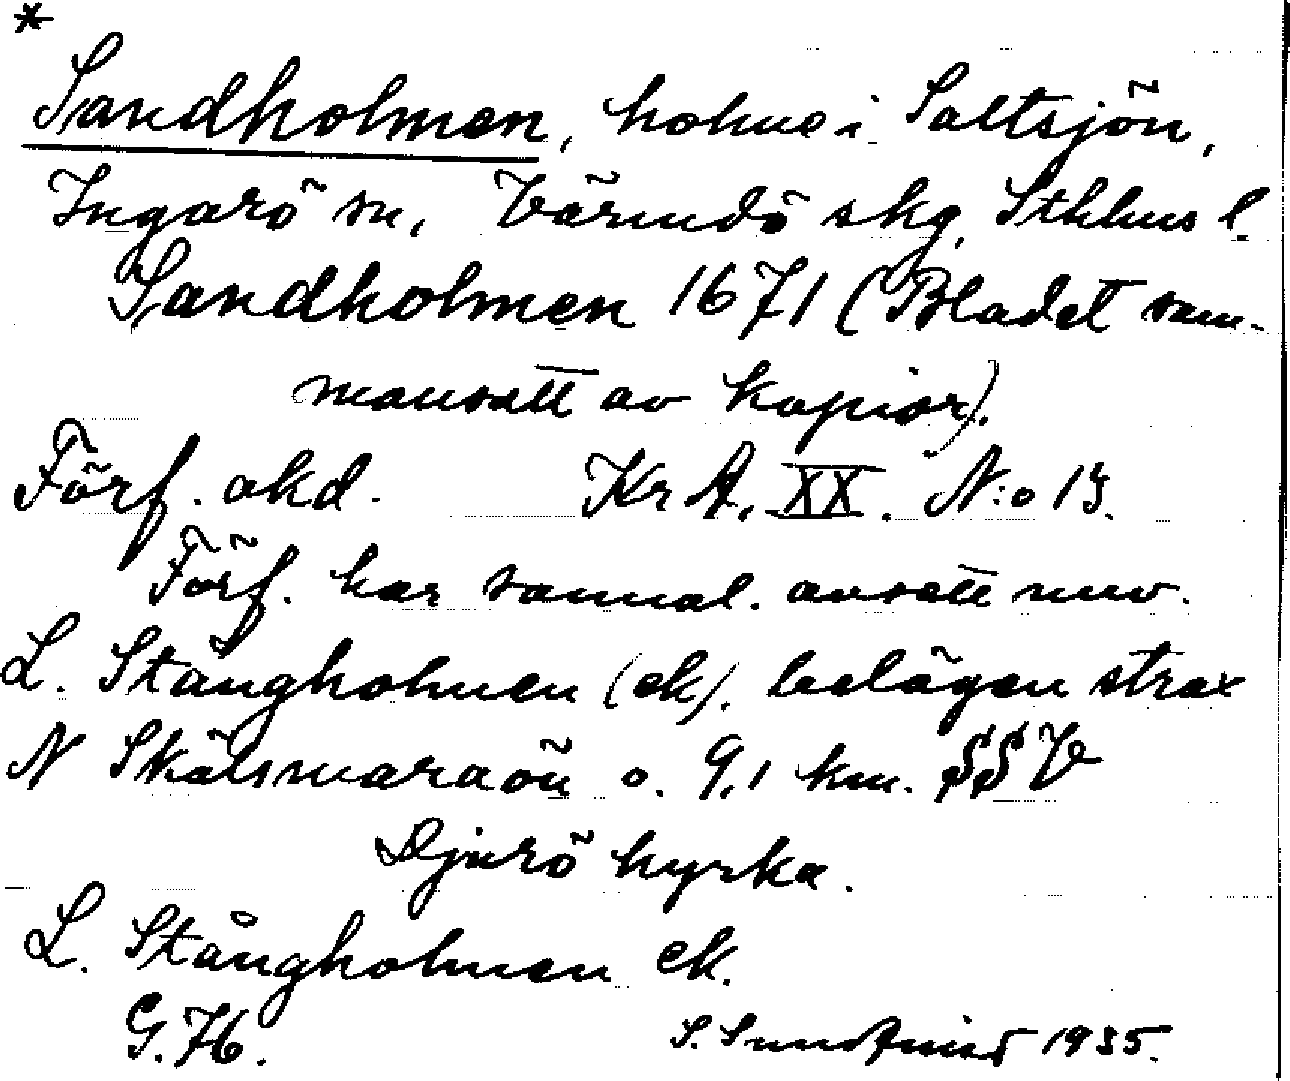 *
Sandholmen, holme i Saltsjön,
Ingarö sn, Värmdö skg, Sthlms l.
Sandholmen 1671 (Bladet sam-
mansatt av kopior).
Förf. okd. KrA, XX. N:o 13.
Förf. har sannol. avsett nuv.
L. Stångholmen (ek). belägen strax
N Skälsmaraön o. 9,1 km. SSV
Djurö kyrka.
L. Stångholmen ek.
G.76. S. Sundqvist 1935.